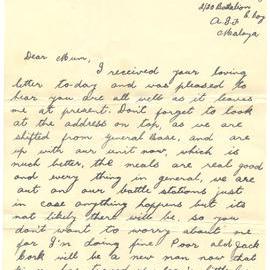 2/30 Battalion
A.I.F.
Malaya
Dear Mum,
I received your loving
letter to-day and was pleased to
hear you are all well as it leaves
me at present. Don't forget to look
at the address on top, as we are
shifted from General Base, and are
up with our unit now, which is
much better, the meals are real good
and every thing in general, we are
out on our battle stations just
in case anything happens but its
not likely there will be, so you
don't want to worry about me
for I'm doing fine Poor old Jack
will be a new man now that